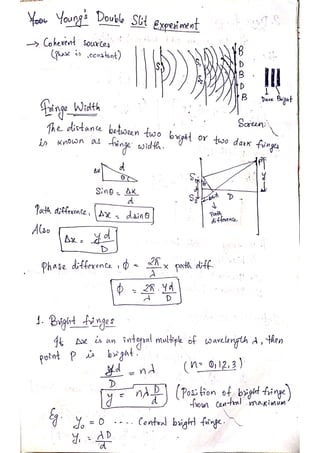 Young's Double Slit Experiment
→ Coherent sources
(phase is constant)
S
B
D
B
D
B
D
B
Dark Bright
Screen
Fringe Width
The distance between two bright or two dark fringes
is known as fringe width.
Δx
d
θ
Sinθ = Δx/d
P
S₁
S₂
D
Path
difference
Path difference, Δx = d sinθ
Also
Δx = yd/D
Phase difference, ϕ = 2π/λ × path diff
ϕ = 2π/λ · yd/D
1. Bright fringes
If Δx is an integral multiple of wavelength λ, then
point P is bright.
yd/D = nλ (n = 0,1,2,3)
y = nλD/d (Position of bright fringe
from central maximum)
Eg. y₀ = 0 .... Central bright fringe.
y₁ = λD/d